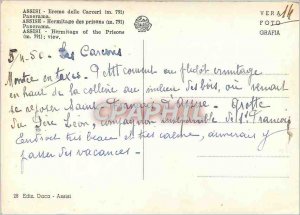 ASSISI - Eremo delle Carceri (m. 791)
Panorama.
ASSISI - Hermitage des prisons (m. 791)
Panorama.
ASSISI - Hermitage of the Prisons
(m. 791): view.
VERA
FOTO
GRAFIA
14
5-11-50. Les Carceris
Montée en taxis. Petit couvent ou plutôt ermitage
en haut de la colline au milieu des bois, où venait
se reposer Saint François d'Assise - Grotte
du Père Léon, compagnon inséparable de St François
Endroit très beau et très calme, aimerais y
passer des vacances -
28 Ediz. Daca - Assisi